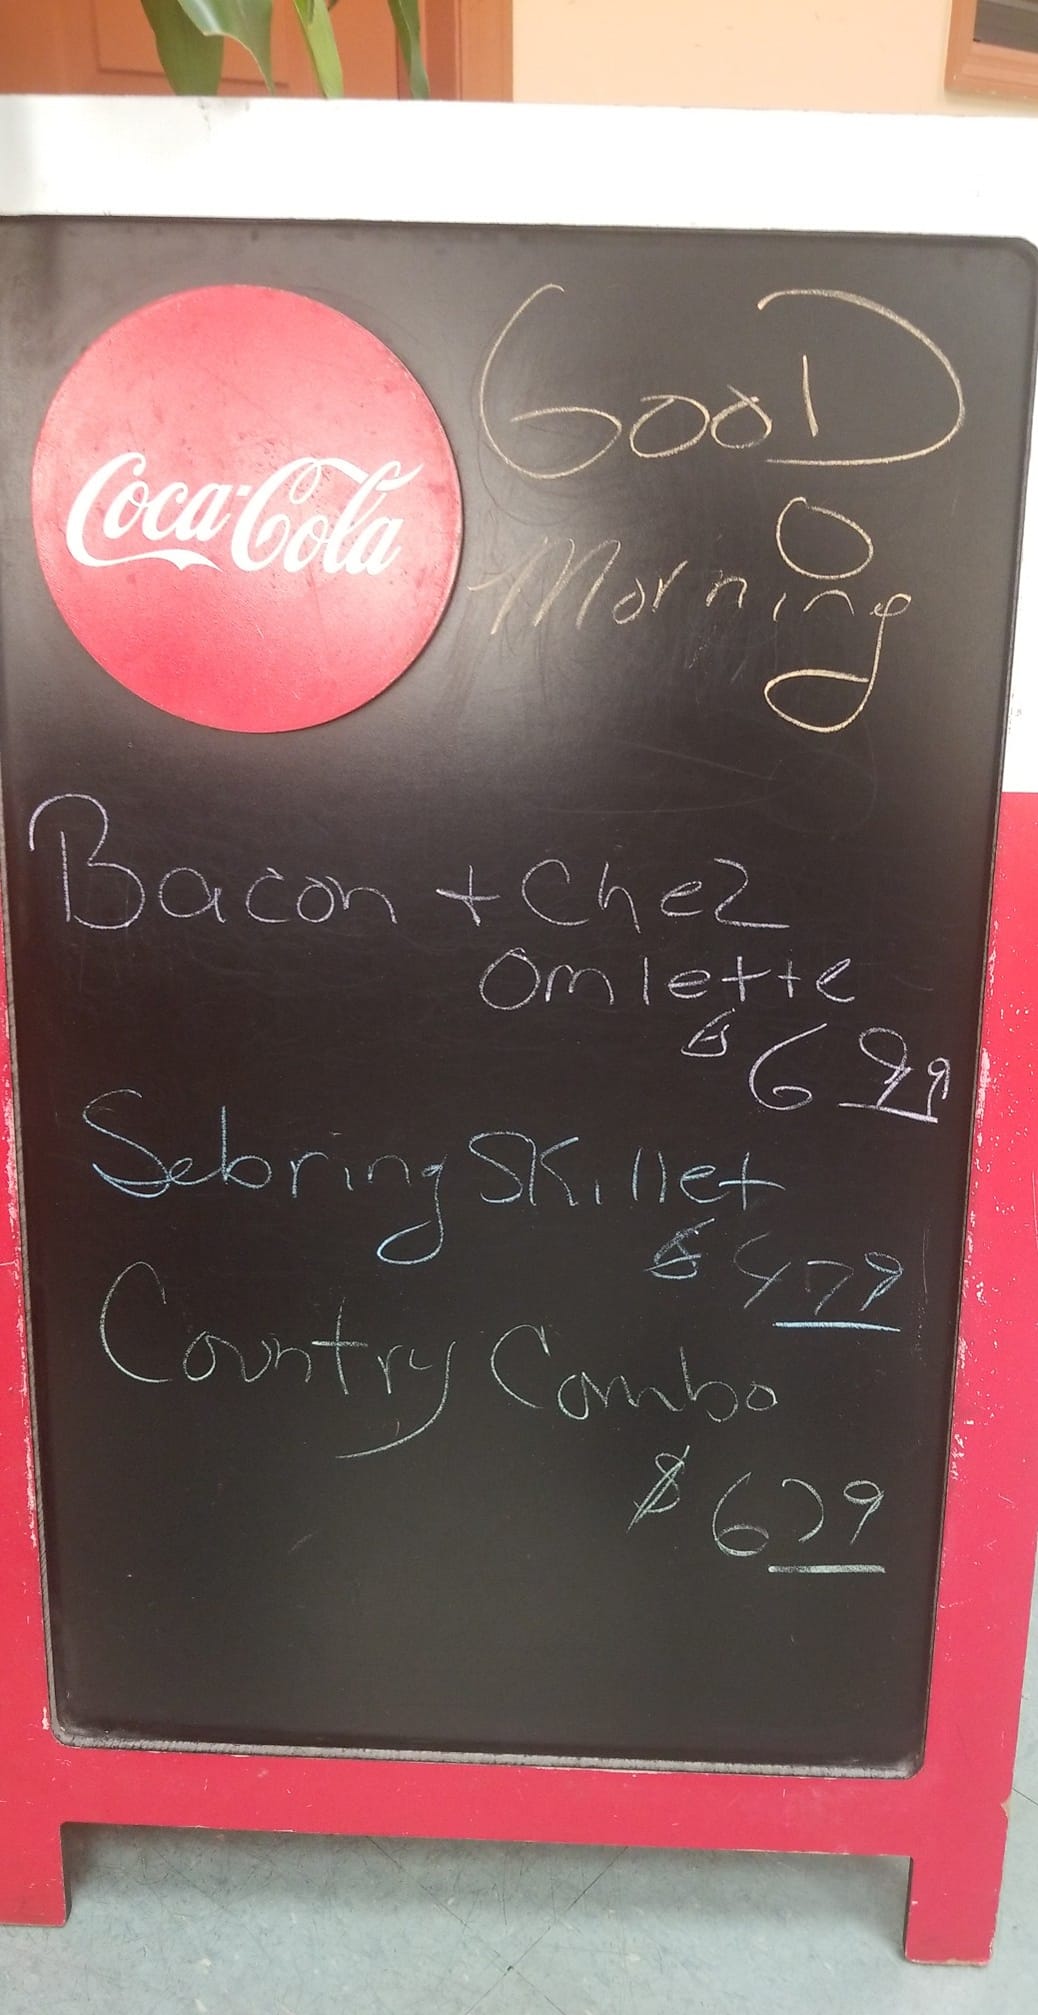 Coca-Cola
GooD
Morning
Bacon + Chez
omlette
$6 99
Sebring Skillet
$ 479
Country Combo
$ 679